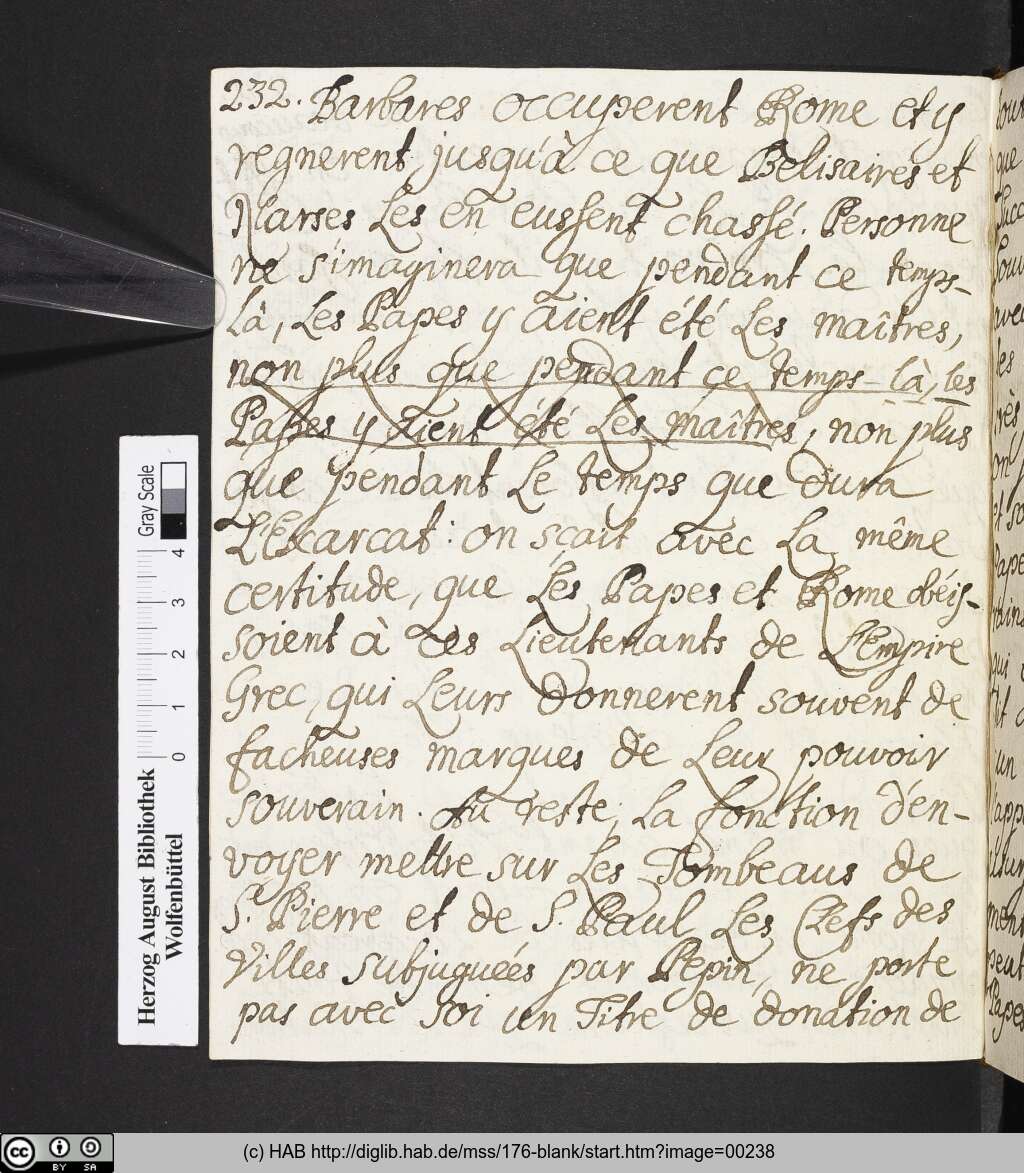 232. Barbares occuperent Rome et y
regnerent, jusqu'à ce que Belisaires et
Narses Les en eussent chassé. Personne
ne s'imaginera que pendant ce temps-
Là, Les Papes y aient été Les maîtres,
non plus que pendant ce temps-là, les
Papes y aient été Les maîtres, non plus
que pendant Le temps que dura
L'Exarcat: on scait avec La même
certitude, que Les Papes et Rome obéis-
soient à ces Lieutenants de L'Empire
Grec, qui Leurs donnerent souvent de
facheuses marques de Leur pouvoir
souverain. Au reste, La fonction d'en-
voyer mettre sur Les Tombeaus de
St. Pierre et de S. Paul Les Clefs des
Villes subjuguées par Pepin, ne porte
pas avec soi un Titre de donation de
Herzog August Bibliothek
Wolfenbüttel
Gray Scale
0 1 2 3 4
cc BY SA
(c) HAB http://diglib.hab.de/mss/176-blank/start.htm?image=00238